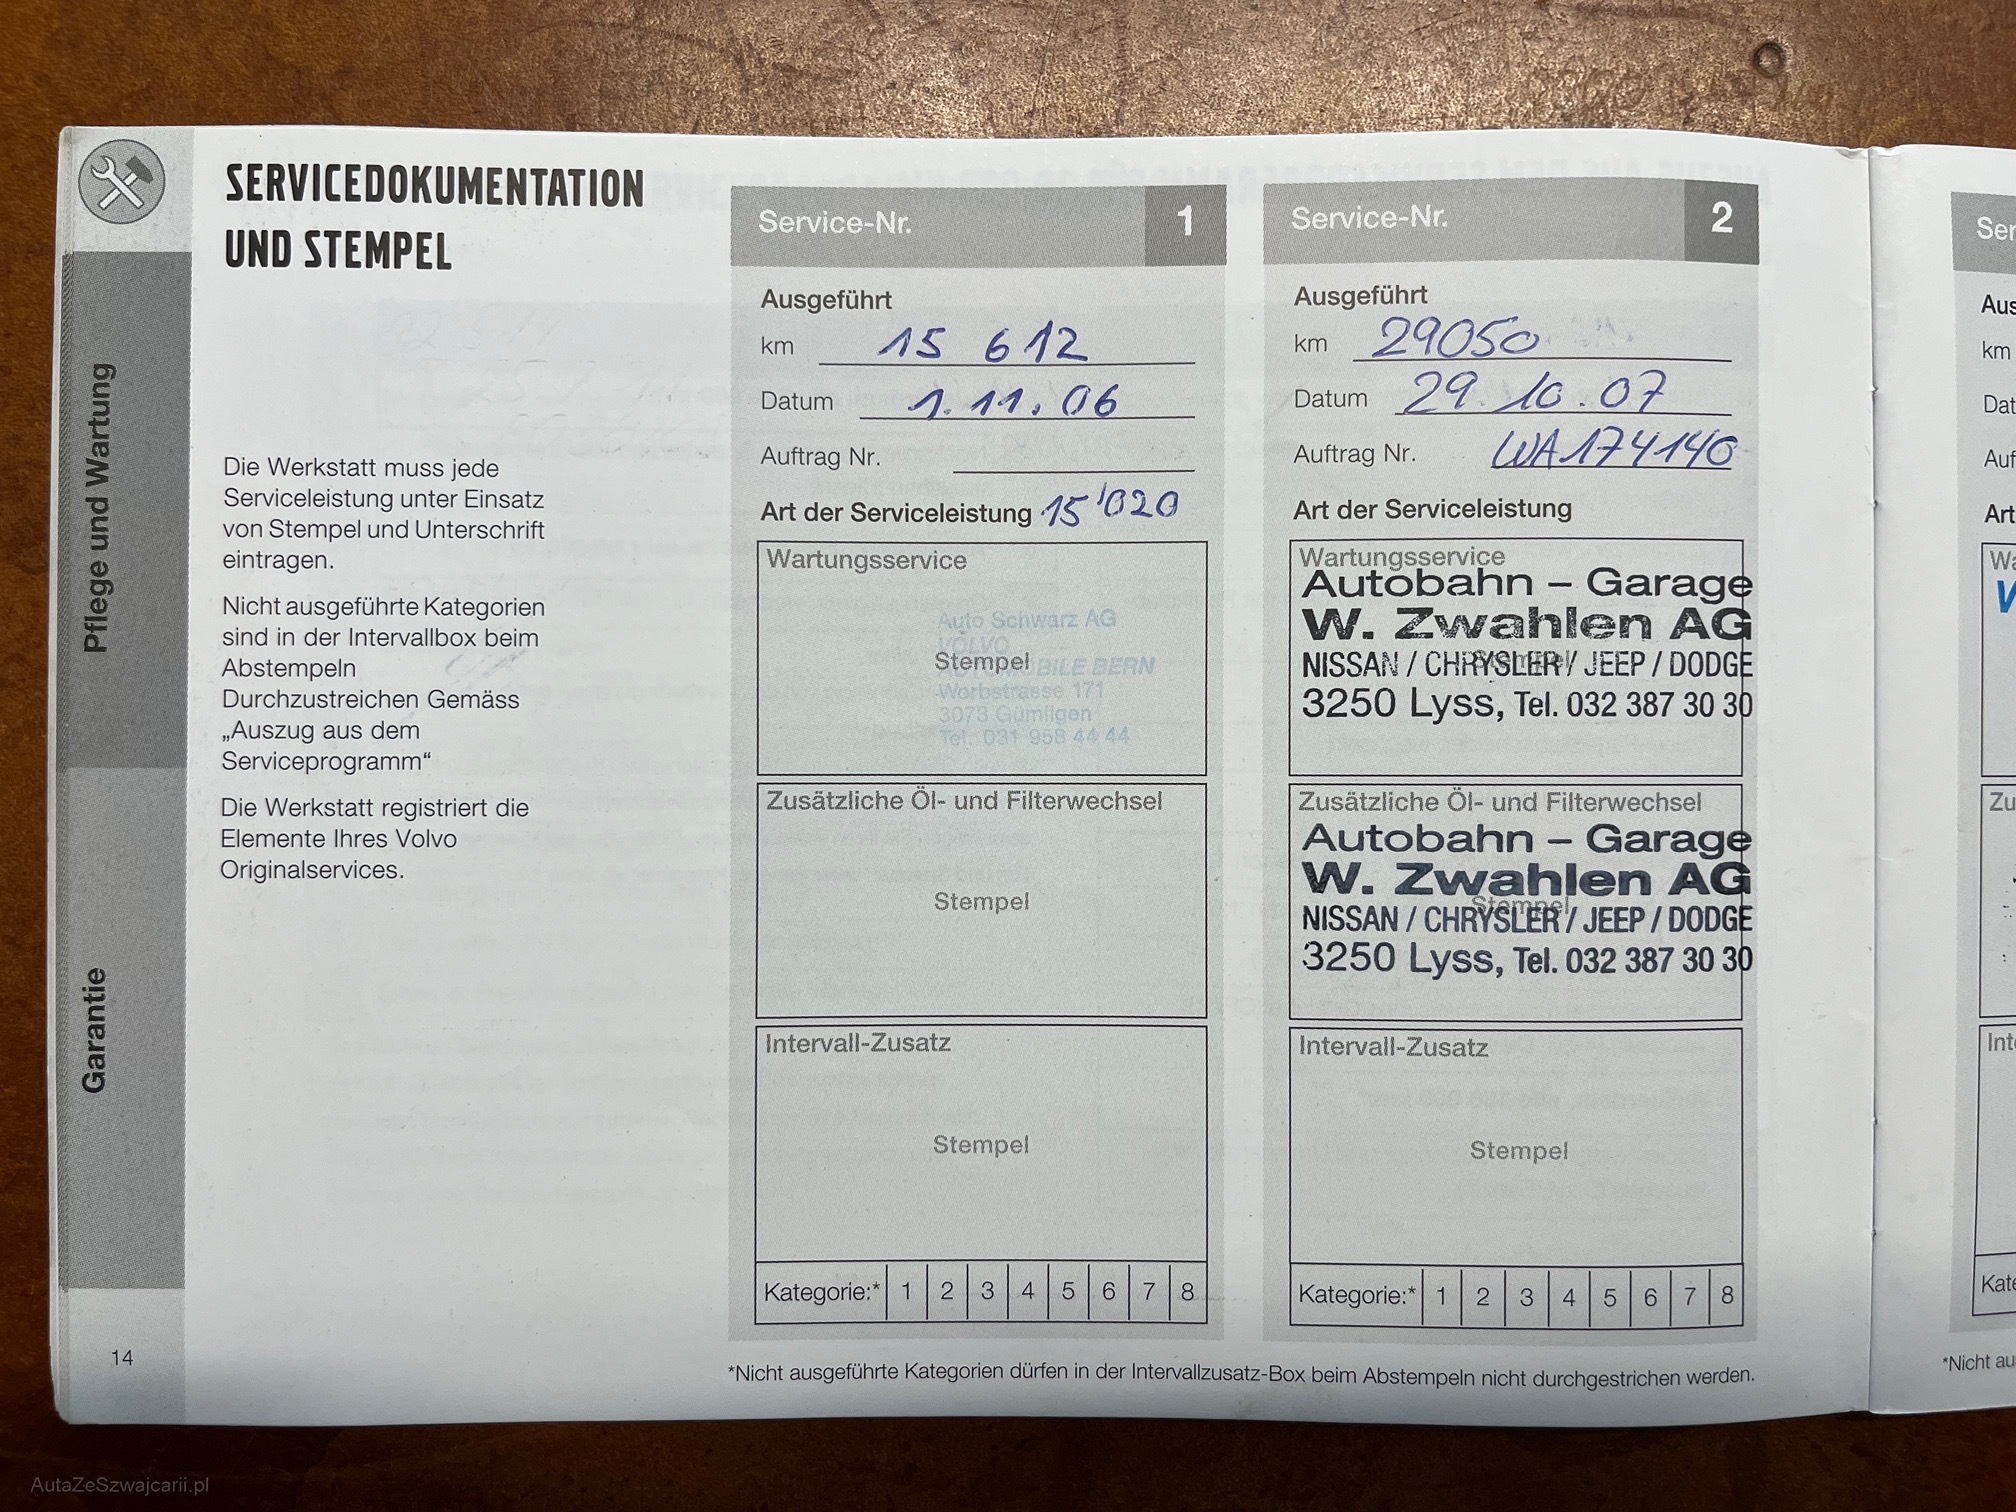 SERVICEDOKUMENTATION
UND STEMPEL
Pflege und Wartung
Garantie
Die Werkstatt muss jede
Serviceleistung unter Einsatz
von Stempel und Unterschrift
eintragen.
Nicht ausgeführte Kategorien
sind in der Intervallbox beim
Abstempeln
Durchzustreichen Gemäss
„Auszug aus dem
Serviceprogramm“
Die Werkstatt registriert die
Elemente Ihres Volvo
Originalservices.
14
Service-Nr. 1
Ausgeführt
km 15 612
Datum 1.11.06
Auftrag Nr.
Art der Serviceleistung 15'020
Wartungsservice
Auto Schwarz AG
VOLVO
Stempel
AUTOMOBILE BERN
Worbstrasse 171
3073 Gümligen
Tel. 031 958 44 44
Zusätzliche Öl- und Filterwechsel
Stempel
Intervall-Zusatz
Stempel
Kategorie:* 1 2 3 4 5 6 7 8
Service-Nr. 2
Ausgeführt
km 29050
Datum 29.10.07
Auftrag Nr. WA174140
Art der Serviceleistung
Wartungsservice
Autobahn – Garage
W. Zwahlen AG
Stempel
NISSAN / CHRYSLER / JEEP / DODGE
3250 Lyss, Tel. 032 387 30 30
Zusätzliche Öl- und Filterwechsel
Autobahn – Garage
W. Zwahlen AG
Stempel
NISSAN / CHRYSLER / JEEP / DODGE
3250 Lyss, Tel. 032 387 30 30
Intervall-Zusatz
Stempel
Kategorie:* 1 2 3 4 5 6 7 8
*Nicht ausgeführte Kategorien dürfen in der Intervallzusatz-Box beim Abstempeln nicht durchgestrichen werden.
km
*Nicht
AutaZeSzwajcarii.pl